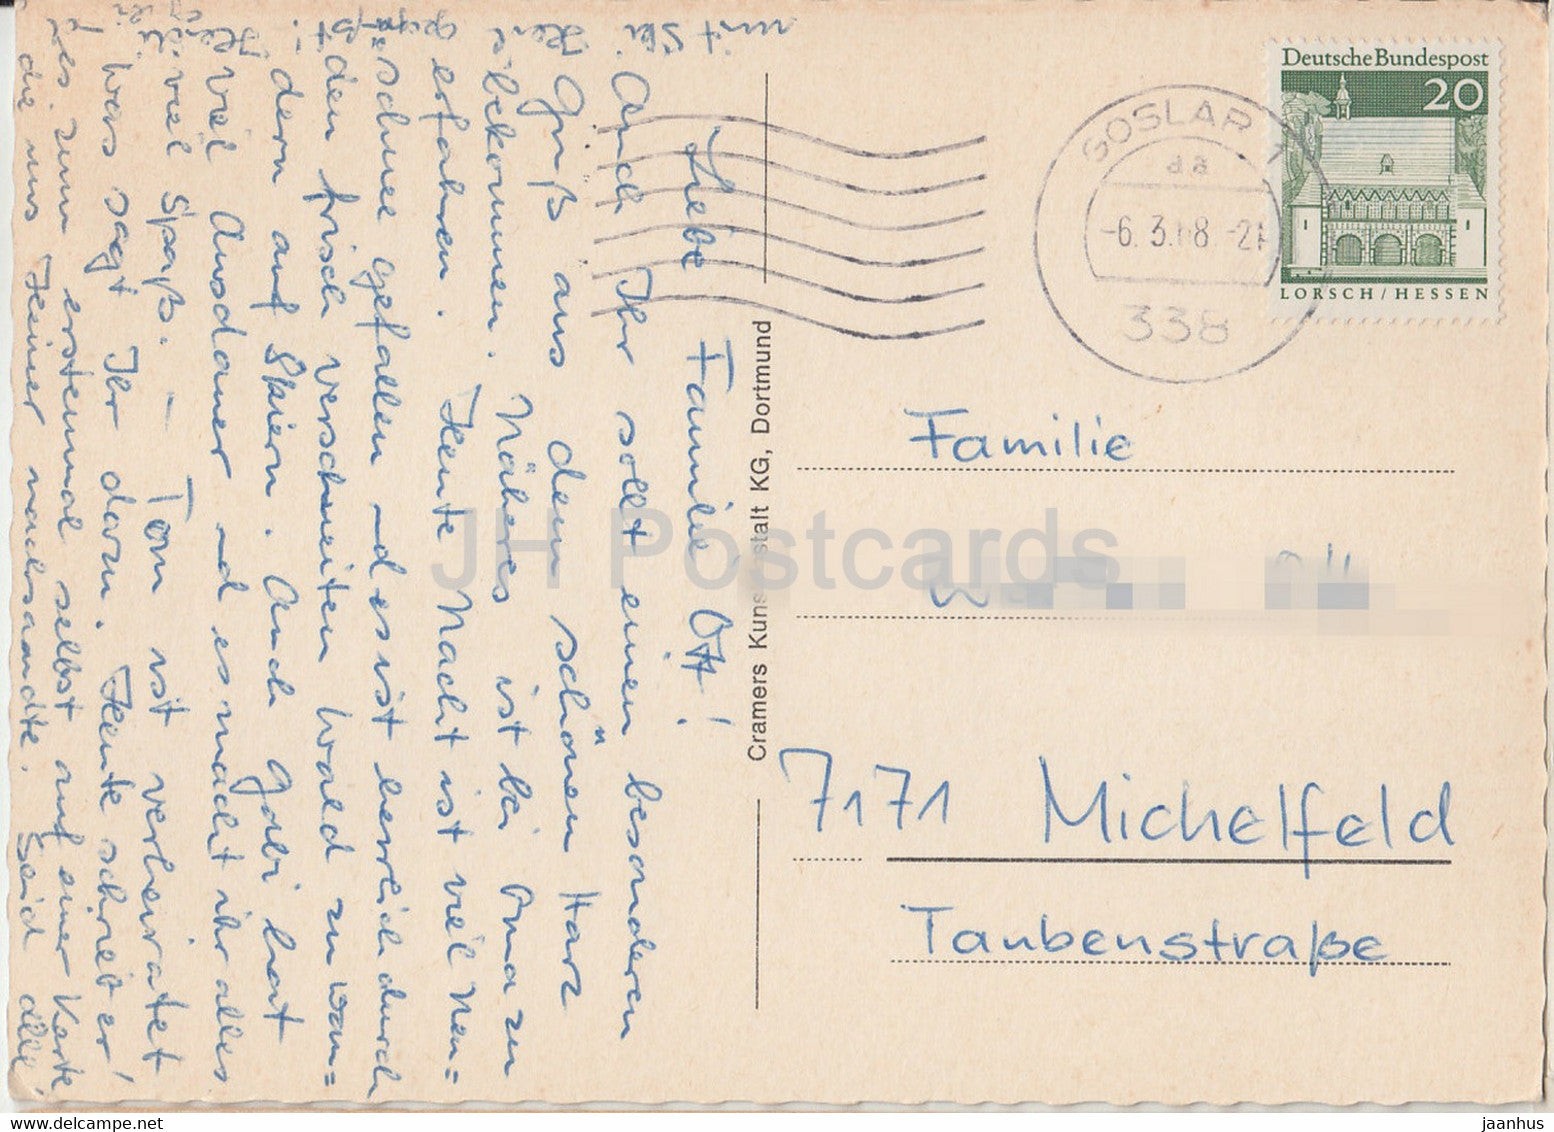 Deutsche Bundespost
20
LORSCH / HESSEN
GOSLAR 1
aa
-6. 3. 68. -21
338
Cramers Kunstanstalt KG, Dortmund
Familie
7171 Michelfeld
Taubenstraße
Liebe Familie Ott!
Auch Ihr sollt einen besonderen
Gruß aus dem schönen Harz
bekommen. Näheres ist bei Oma zu
erfahren. Heute Nacht ist viel Neu=
schnee gefallen - es ist herrlich durch
den frisch verschneiten Wald zu wan=
dern auf Skiern. Auch Gabi hat
viel Ausdauer und es macht ihr alles
viel Spaß. - Tom ist verheiratet
was sagt Ihr dazu. Heute schrieb er!
es zum erstenmal selbst auf einer Karte
die uns Heiner nachsandte. Seid alle
mit Ski
JH Postcards
www.jaanhus